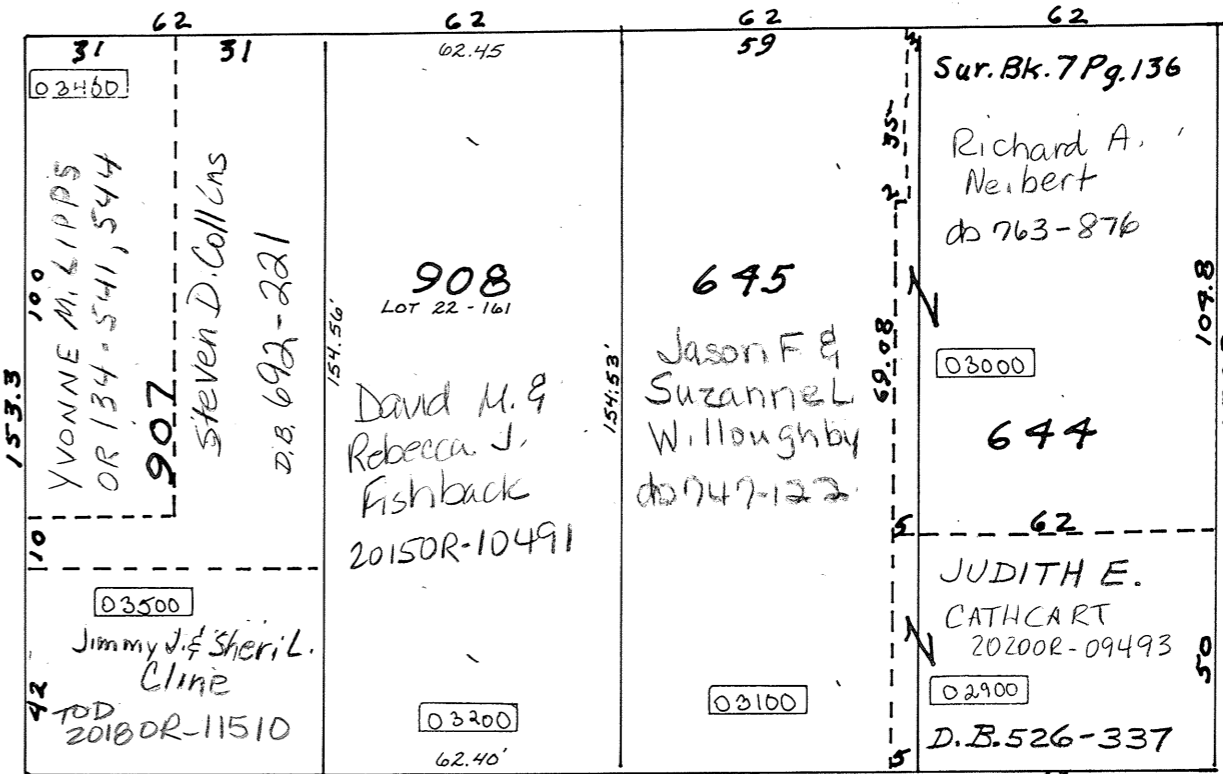 62
62
62
62
31
31
62.45
59
3
03400
YVONNE M. LIPPS
OR 134-541,544
100
153.3
907
Steven D. Collins
D.B. 692-221
10
03500
Jimmy J. & Sheri L.
Cline
TOD
2018OR-11510
42
154.56'
908
LOT 22-161
David M. &
Rebecca J.
Fishback
2015OR-10491
03200
62.40'
154.53'
645
Jason F &
Suzanne L
Willoughby
db 747-122
03100
35
2
69.08
5
5
Sur. Bk. 7 Pg. 136
Richard A.
Neibert
db 763-876
03000
644
104.8
62
JUDITH E.
CATHCART
2020OR-09493
02900
50
D.B. 526-337